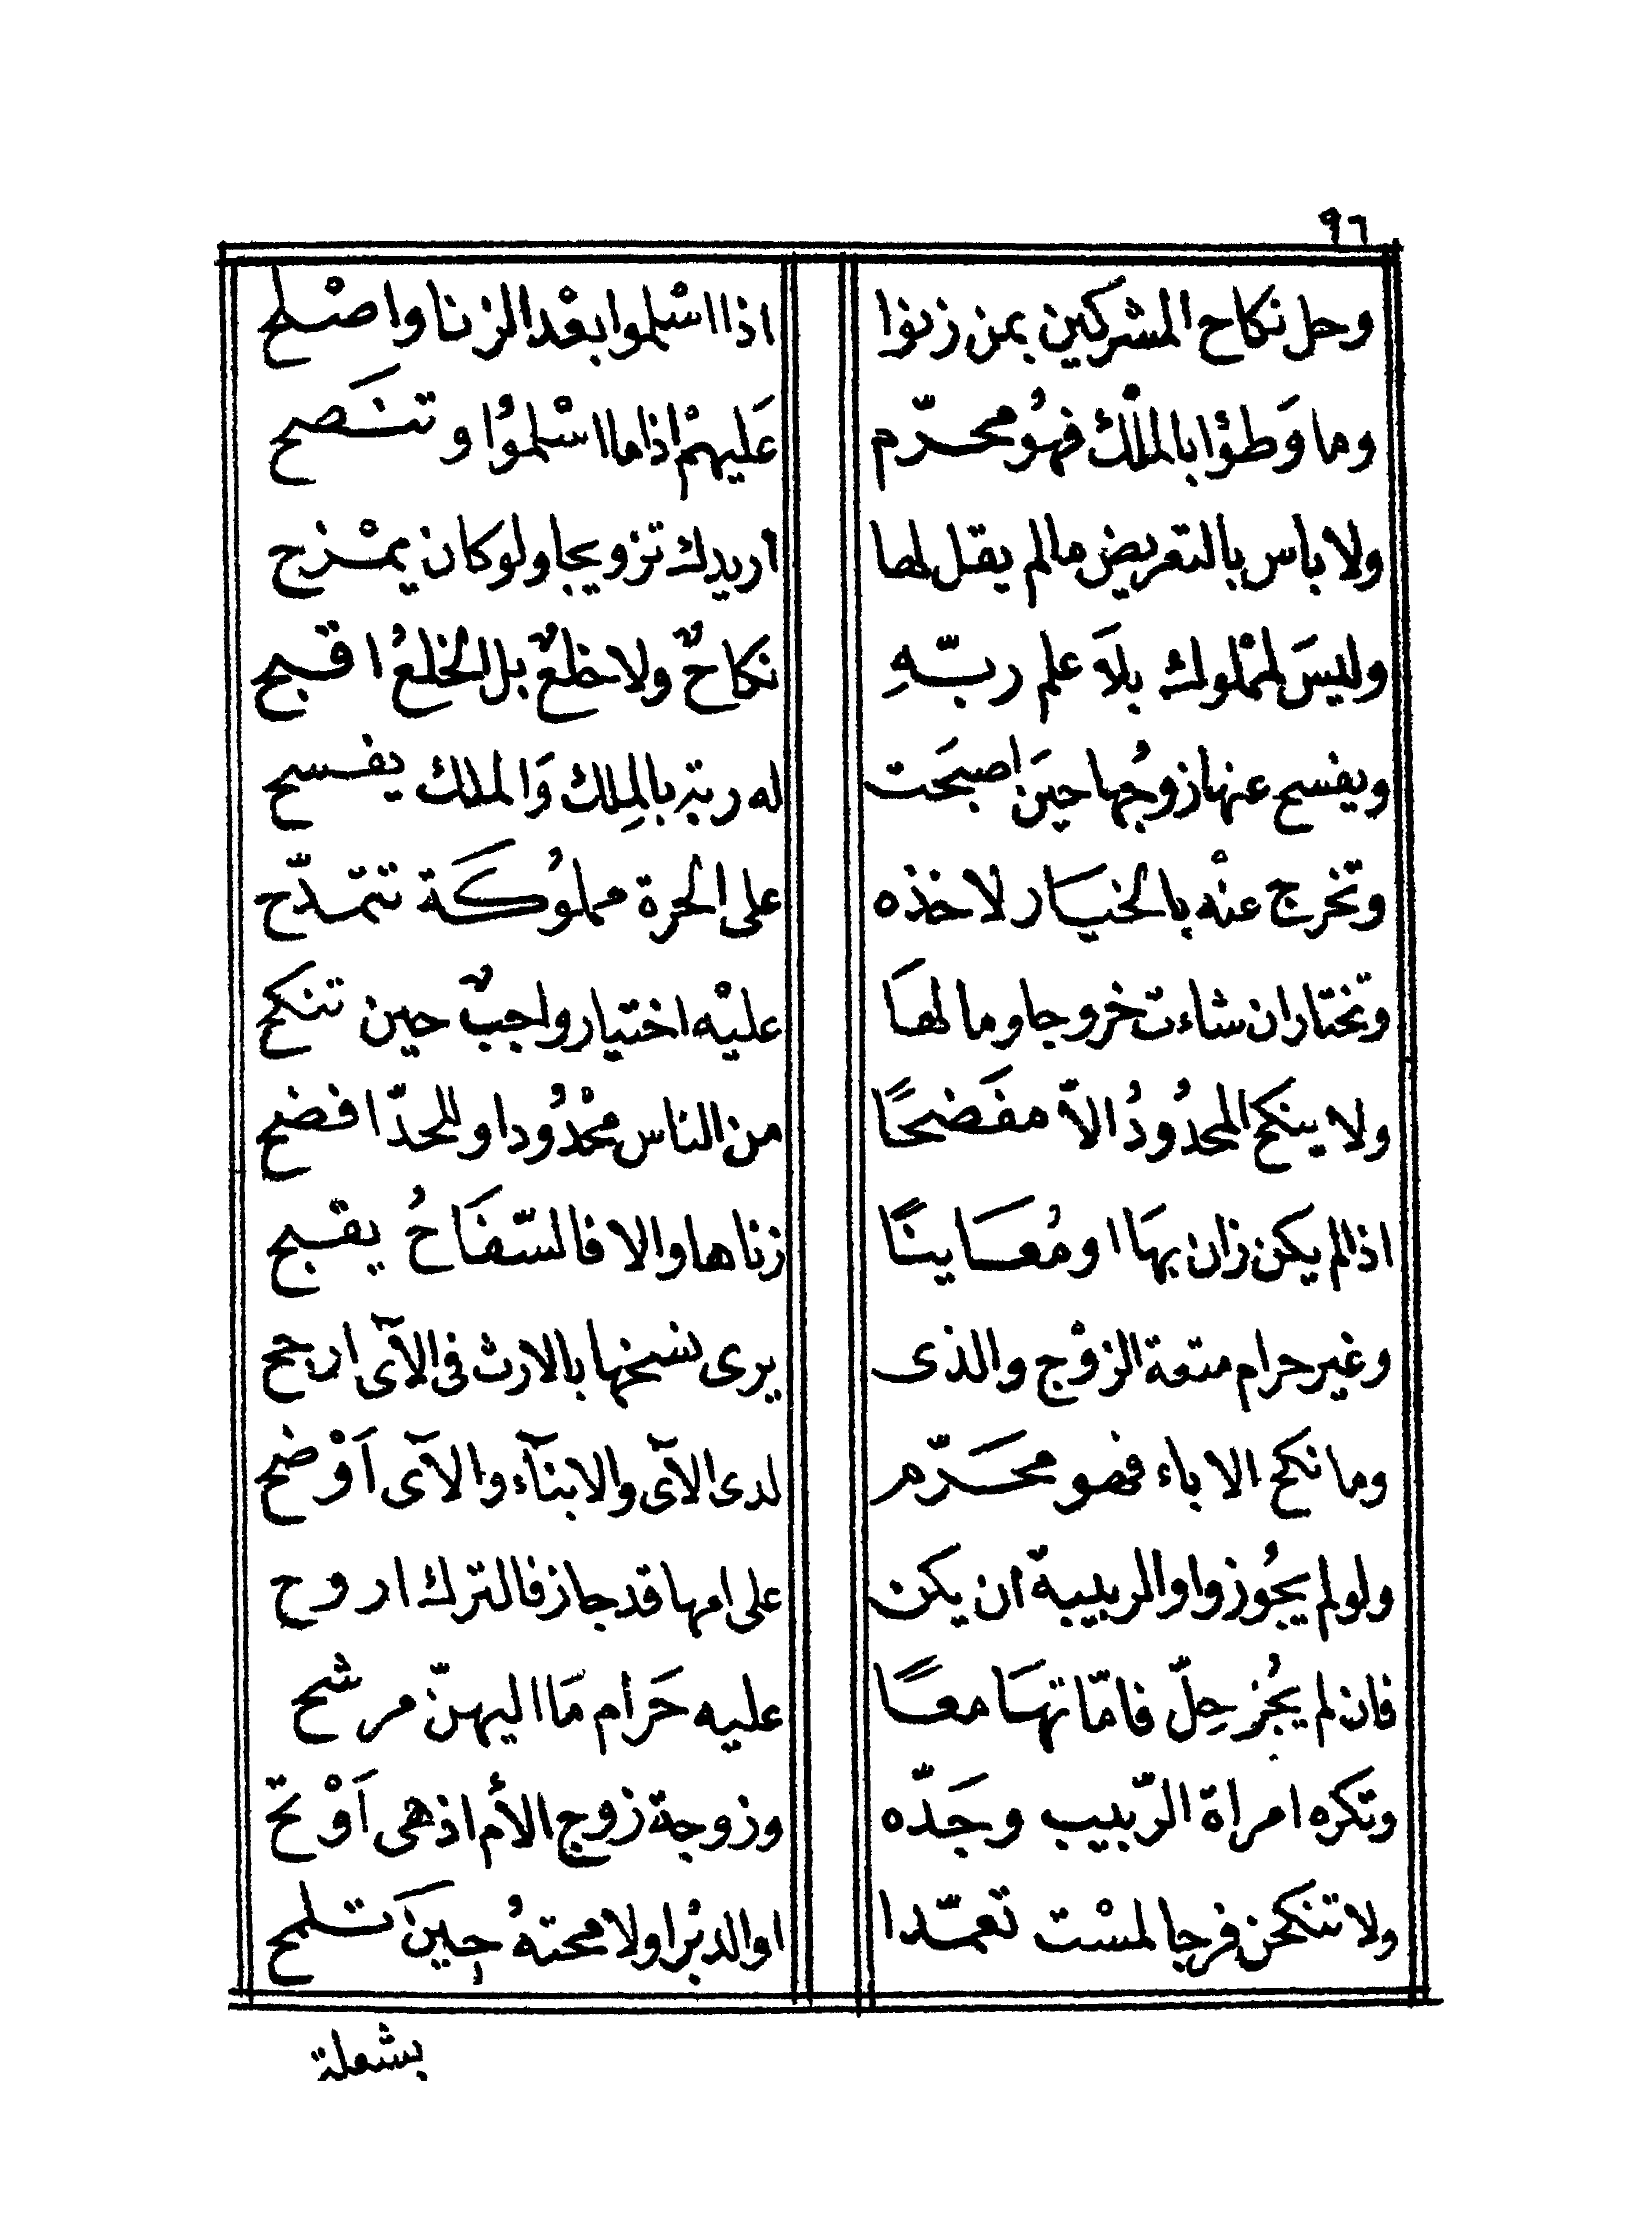 ٩٦
وحل نكاح المشركين بمن زنوا اذا اسْلموا بعْد الزنا واصْلح
وما وَطؤا بالملْك فهُو محرّم عَليهمْ اذا ما اسْلمُوا وتنَصح
ولا باس بالتعريض ما لم يقل لها اريدك تزويجا ولو كان يمْزج
وليسَ لمملوك بلاَ علم ربّهِ نكاحٌ ولا خلعٌ بل الخلعُ اقبح
ويفسح عنها زوجُها حينَ اصبحَت له ربّة بالمِلك وَالملك يفسح
وتخرج عنْه بالخيار لاخذه على الحرة مملوُكَة تتمدّح
وتختار ان شاءت خروجا وما لهَا عليْه اختيار واجبٌ حين تنكح
ولا ينكح المحدُودُ الاّ مفَضحًا من الناس محْدُودا وللحدّ افضح
اذا لم يكن زان بهَا او مُعَاينًا زناها والا فالسّفَاحُ يقبح
وغير حرام متعة الزوْج والذى يرى نسخها بالارث فى الآى ارجح
وما نكح الاباء فهو محَرّم لدى الآى والابنآء والآى اَوْضح
ولو لم يجُوزوا والربيبةّ ان يكن على امها قد جاز فالترك اروح
فان لم يجُز حِلّ فامّاتهَا معًا عليه حَرام مَا اليهنّ مرشح
وتكره امراة الرّبيب وجَدّه وزوجة زوج الأم اذ هى اَوْتح
ولا تنكحن فرجا لمسْت تعمّدا او الدبْرا ولا محتهُ حِينَ تلمح
بشعلة